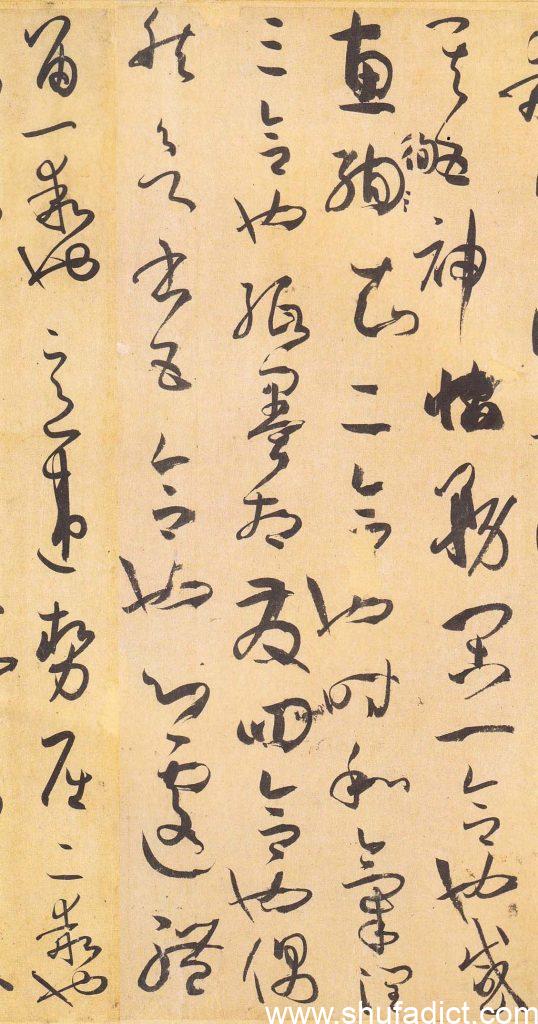 其五神怡務閑一合也感
惠徇知二合也時和氣潤
三合也紙墨相發四合也偶
然欲書五合也心遽體
留一乖也意違勢屈二乖也
www.shufadict.com